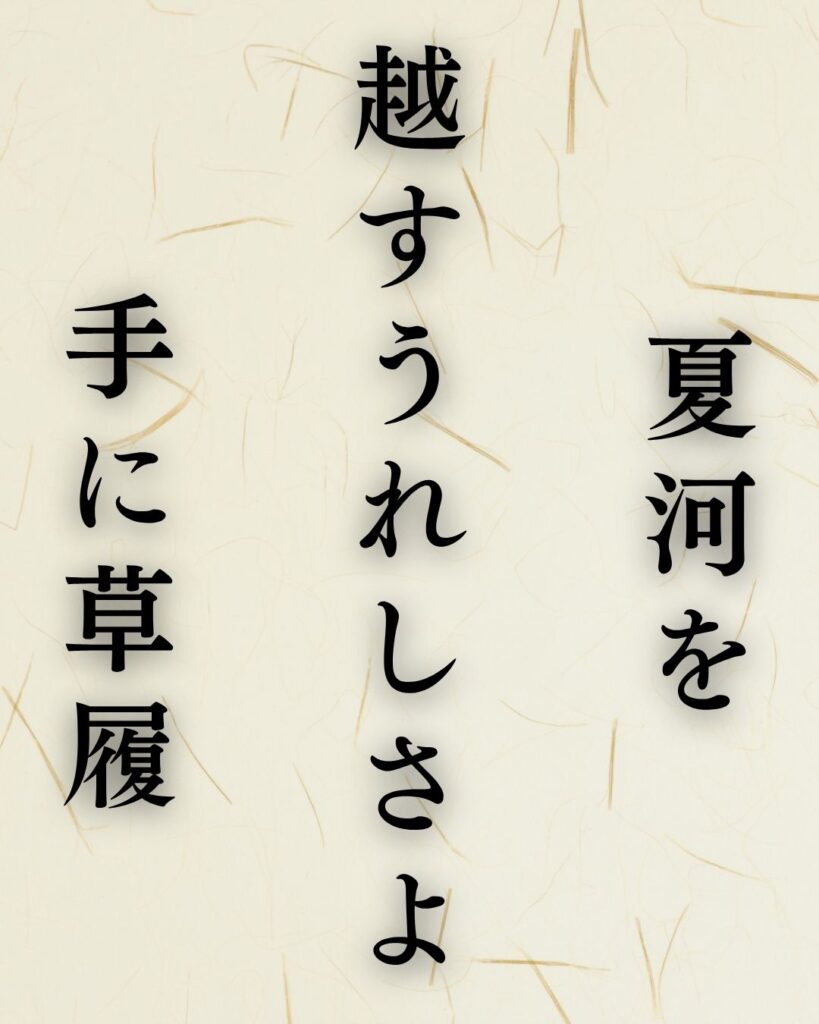 夏河を
越すうれしさよ
手に草履